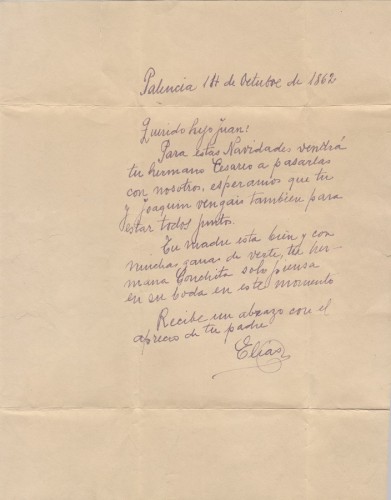 Palencia 14 de Octubre de 1862
Querido hijo Juan:
Para estas Navidades vendrá
tu hermano Cesareo a pasarlas
con nosotros, esperamos que tu
y Joaquin vengais tambien para
estar todos juntos.
Tu madre esta bien y con
muchas ganas de verte, tu her-
mana Conchita solo piensa
en su boda en este momento
Recibe un abrazo con el
aprecio de tu padre
Elías